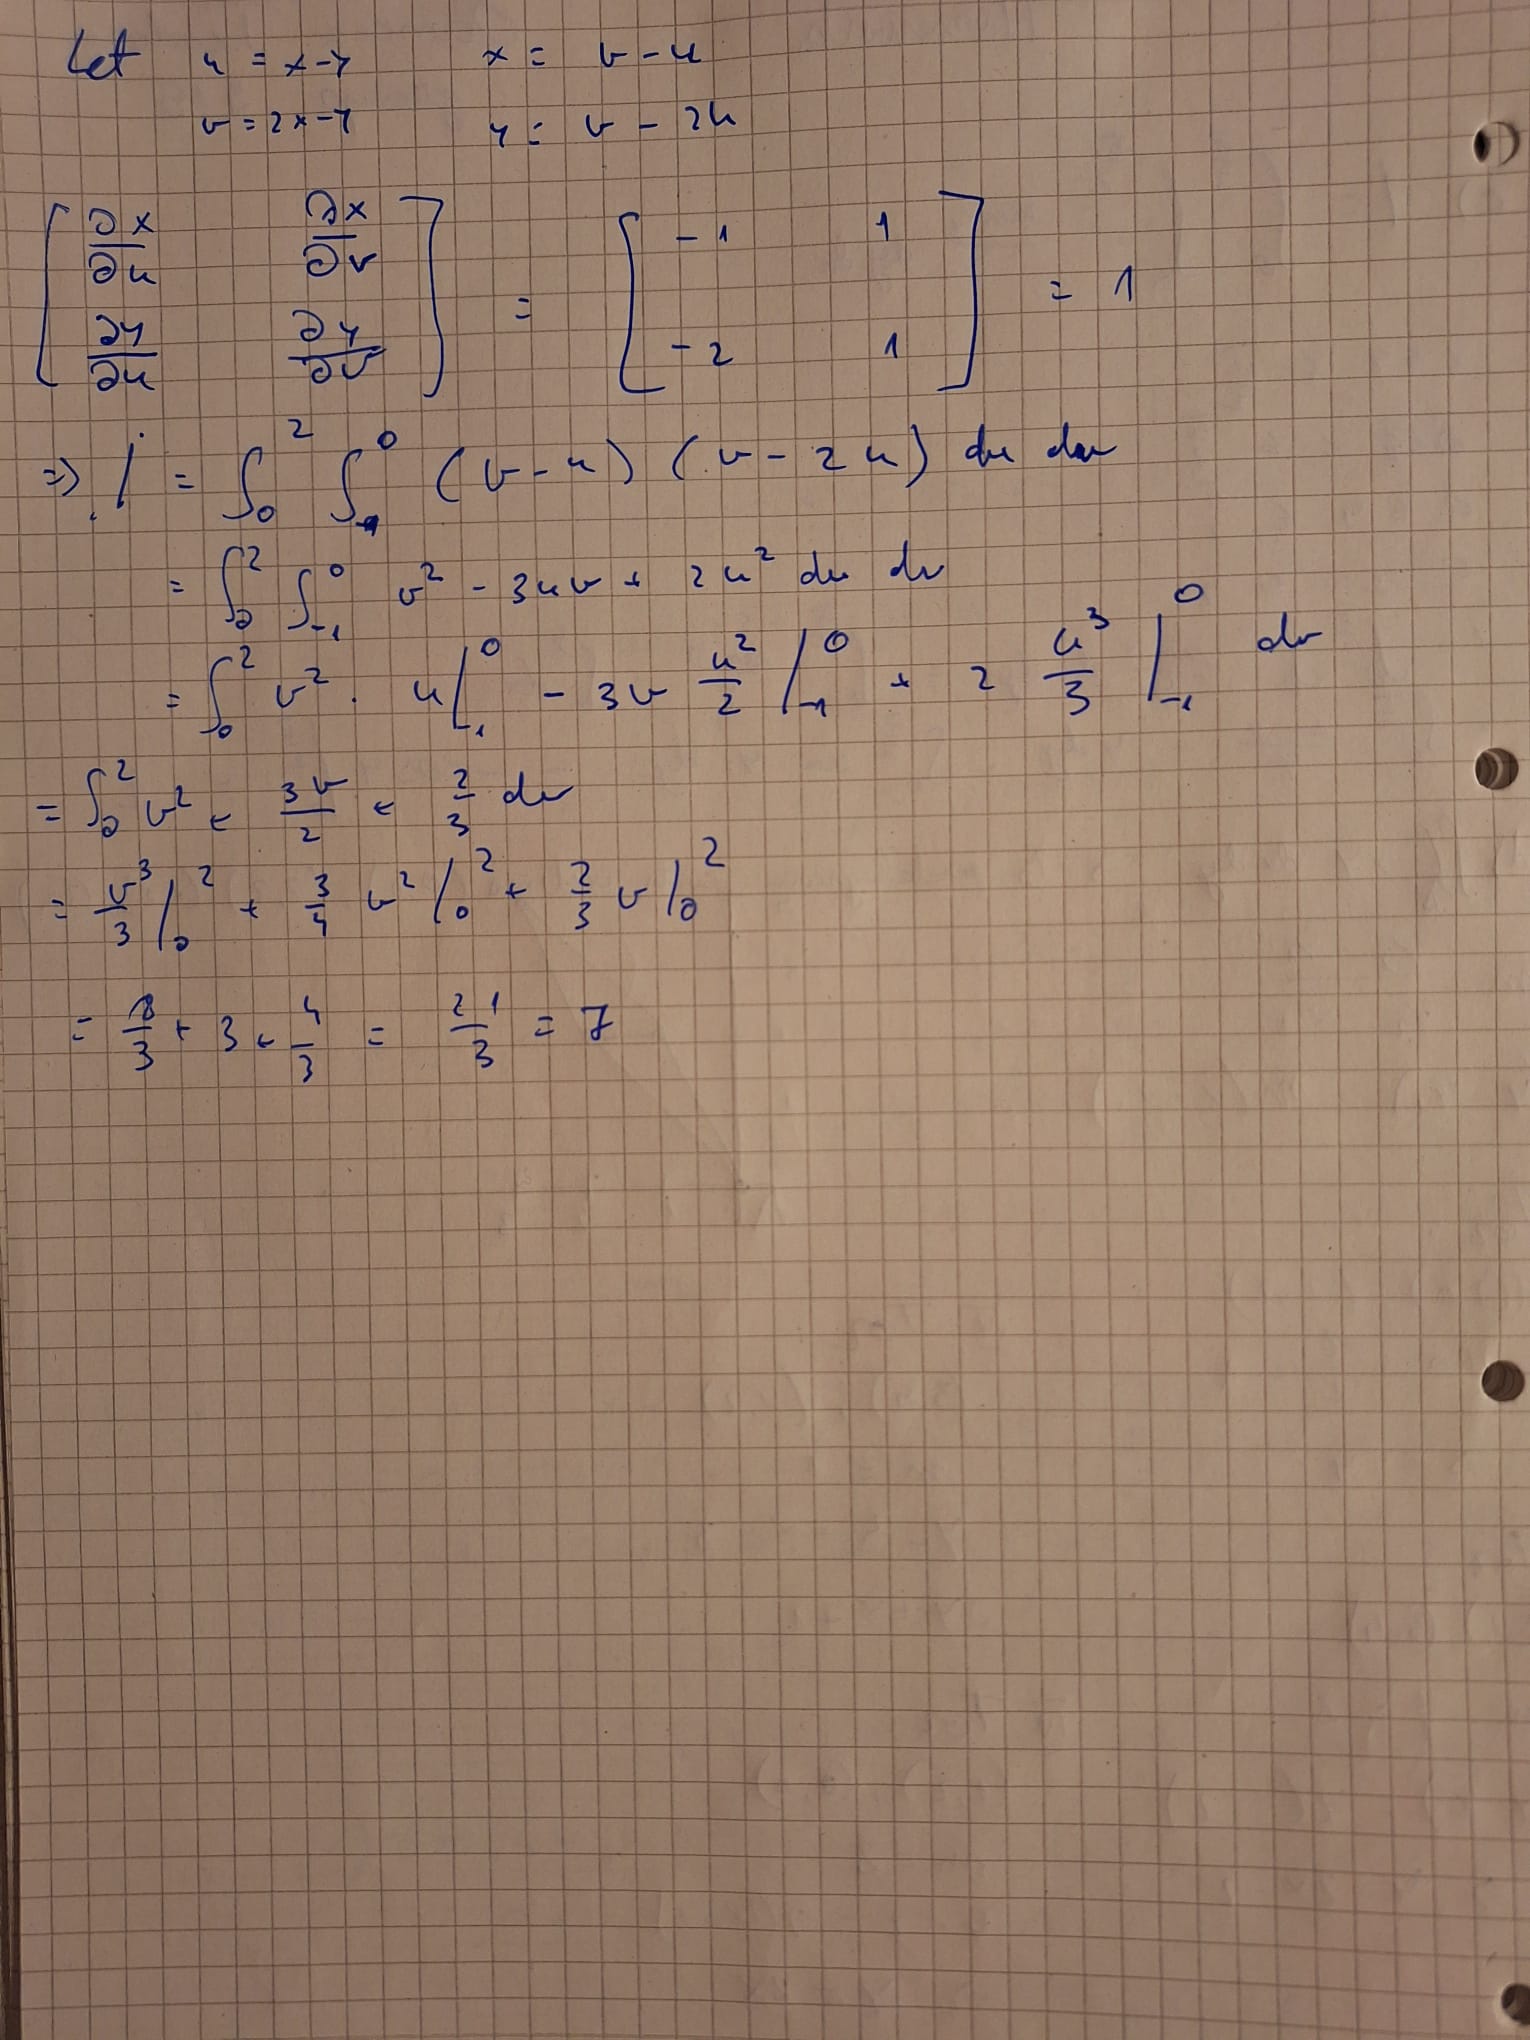 Let u = x-y x = v-u
v = 2x-y y = v - 2u
[ ∂x/∂u ∂x/∂v ; ∂y/∂u ∂y/∂v ] = [ -1 1 ; -2 1 ] = 1
=> I = ∫₀² ∫₋₁⁰ (v-u) (v-2u) du dv
= ∫₀² ∫₋₁⁰ v² - 3uv + 2u² du dv
= ∫₀² v² · u|₋₁⁰ - 3v u²/2 |₋₁⁰ + 2 u³/3 |₋₁⁰ dv
= ∫₀² v² + 3v/2 + 2/3 dv
= v³/3 |₀² + 3/4 v² |₀² + 2/3 v |₀²
= 8/3 + 3 + 4/3 = 21/3 = 7